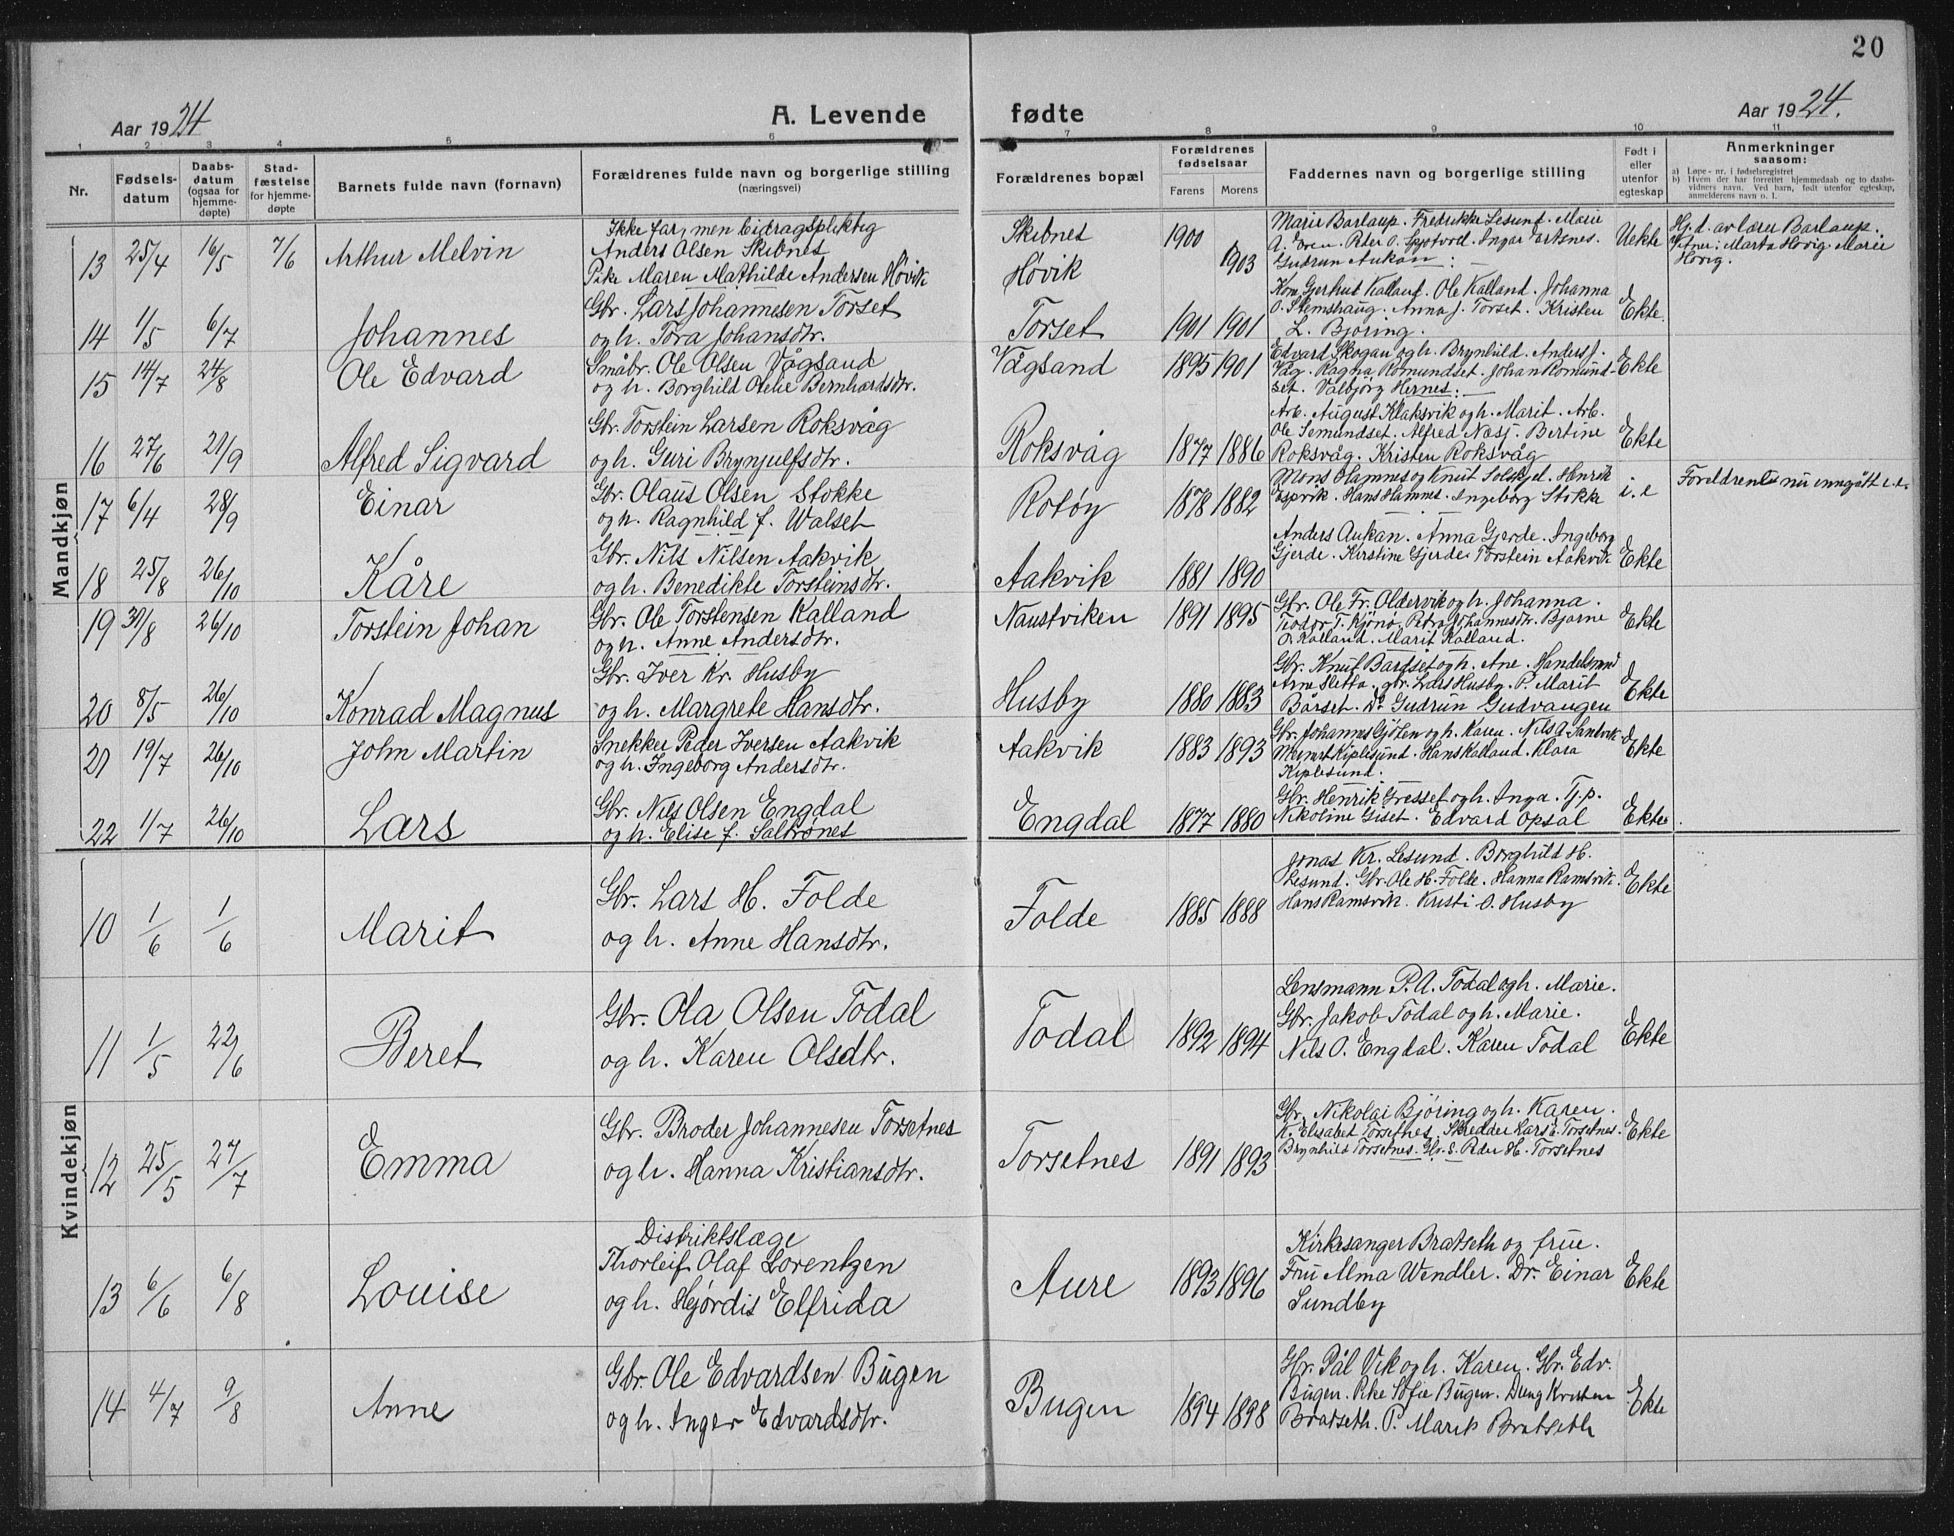 20
Aar 1924 A. Levende fødte Aar 1924.
1 2 3 4 5 6 7 8 9 10 11
Nr. Fødsels-datum Daabs-datum (ogsaa for hjemme-døpte) Stad-fæstelse for hjemme-døpte Barnets fulde navn (fornavn) Forældrenes fulde navn og borgerlige stilling (næringsvei) Forældrenes bopæl Forældrenes fødselsaar Farens Morens Faddernes navn og borgerlige stilling Født i eller utenfor egteskap Anmerkninger saasom:
a) Løpe-nr. i fødselsregistret
b) Hvem der har forrettet hjemmedaab og to daabsvidners navn. Ved barn, født utenfor egteskap, anmelderens navn o. l.
Mandkjøn
13 25/4 16/5 7/6 Arthur Melvin
Ikke far, men bidragspliktig
Anders Olsen Skibnes
Pike Maren Mathilde Andersen Høvik
Skibnes
Høvik
1900 1903
Marie Barlaup. Fredrikke Lesund. Marie
Gudrun Aukan
Uekte
Hj.d. av lærer Barlaup.
Vitner: Marta Hovig Marie
Hovig.
14 1/5 6/7 Johannes
Gbr. Lars Johannesen Torset
og h. Tora Johansdtr.
Torset 1901 1901
Kom. Gjerhut Kalland. Ole Kalland. Johanna
O. Stemshaug. Anna J. Torset. Kristen
L. Bjøring.
Ekte.
15 14/7 24/8 Ole Edvard
Småbr. Ole Olsen Vågsand
og h. Borghild Oelie Bernhardsdtr.
Vågsand 1895 1901
Edvard Skogan og h. Brynhild. Anders J.
Våg. Ragna Romundset. Johan Romund-
set. Valbjörg Hernes:
Ekte
16 27/6 21/9 Alfred Sigvard
Gbr. Torstein Larsen Roksvåg
og h. Guri Brynjulfsdtr.
Roksvåg 1877 1886
Arb. August Klaksvik og h. Marit. Arb.
Ole Semundset. Alfred Næsj. Bertine
Roksvåg. Kristen Roksvåg
Ekte
17 6/4 28/9 Einar
Gbr. Olaus Olsen Stokke
og h. Ragnhild f. Walset
Rotøy 1878 1882
Mons Hamnes og Knut Solskjel. Henrik
Espvik. Hans Hamnes. Ingeborg Stokke
i. e
Foreldrene nu inngått e.
18 25/8 26/10 Kåre
Gbr. Nils Nilsen Aakvik
og h. Benedikte Torsteinsdtr.
Aakvik 1881 1890
Anders Aukan. Anna Gjerde. Ingeborg
Gjerde. Kirstine Gjerde. Torstein Aakvik
Ekte
19 30/8 26/10 Torstein Johan
Gbr. Ole Torstensen Kalland
og h. Anne Andersdtr.
Naustviken 1891 1895
Gbr. Ole Fr. Oldervik og h. Johanna.
Teodor T. Kjönö. Petra Johannesdtr. Bjarne
O. Kalland. Marit Kalland.
Ekte
20 8/5 26/10 Konrad Magnus
Gbr. Iver Kr. Husby
og h. Margrete Hansdtr.
Husby 1880 1883
Gbr. Knut Bårdset og h. Ane. Handelsmnd
Arne Sletta. gbr. Lars Husby. P. Marit
Bårset. Do Gudrun Gudvangen
Ekte
21 19/7 26/10 John Martin
Snekker Peder Iversen Aakvik
og h. Ingeborg Andersdtr.
Aakvik 1883 1893
Gbr. Johannes Gjöten og h. Karen. Nils A. Sandvik.
Meyart Kiplesund. Hans Kalland. Klara
Kiplesund.
Ekte
22 1/7 26/10 Lars
Gbr. Nils Olsen Engdal
og h. Elise f. Saltrønes
Engdal 1877 1880
Gbr. Henrik Gresset og h. Inga. T.p.
Nikoline Giset. Edvard Opsal
Ekte.
Kvindekjøn
10 1/6 1/6 Marit
Gbr. Lars H. Folde
og h. Anne Hansdtr.
Folde 1885 1888
Jonas Kr. Lesund. Borghild H.
Lesund. Gbr. Ole H. Folde. Hanna Ramsvik.
Hans Ramsvik. Kristi O. Husby
Ekte
11 1/5 22/6 Beret
Gbr. Ola Olsen Todal
og h. Karen Olsdtr.
Todal 1892 1894
Lensmann P. A. Todal og h. Marie.
Gbr. Jakob Todal og h. Marie.
Nils O. Engdal. Karen Todal
Ekte
12 25/5 27/7 Emma
Gbr. Broder Johannesen Torsetnes
og h. Hanna Kristiansdtr.
Torsetnes 1891 1893
Gbr. Nikolai Björing og h. Karen.
K. Elisabet Torsetnes. Skredder Lars E. Torsetnes.
Brynhild Torsetnes. Gbr. S. Peder H. Torsetnes
Ekte
13 6/6 6/8 Louise
Distriktslæge
Thorleif Olaf Lorentzen
og h. Hjørdis Elfrida
Aure 1893 1896
Kirkesanger Bratseth og frue.
Fru Alma Wendler. Dr. Einar
Sundby
Ekte
14 4/7 9/8 Anne
Gbr. Ole Edvardsen Bugen
og h. Inger Edvardsdtr.
Bugen 1894 1898
Gbr. Pål Vik og h. Karen. Gbr. Edv.
Bugen. Pike Sofie Bugen. Dreng Kristen
Bratseth. P. Marit Bratseth
Ekte